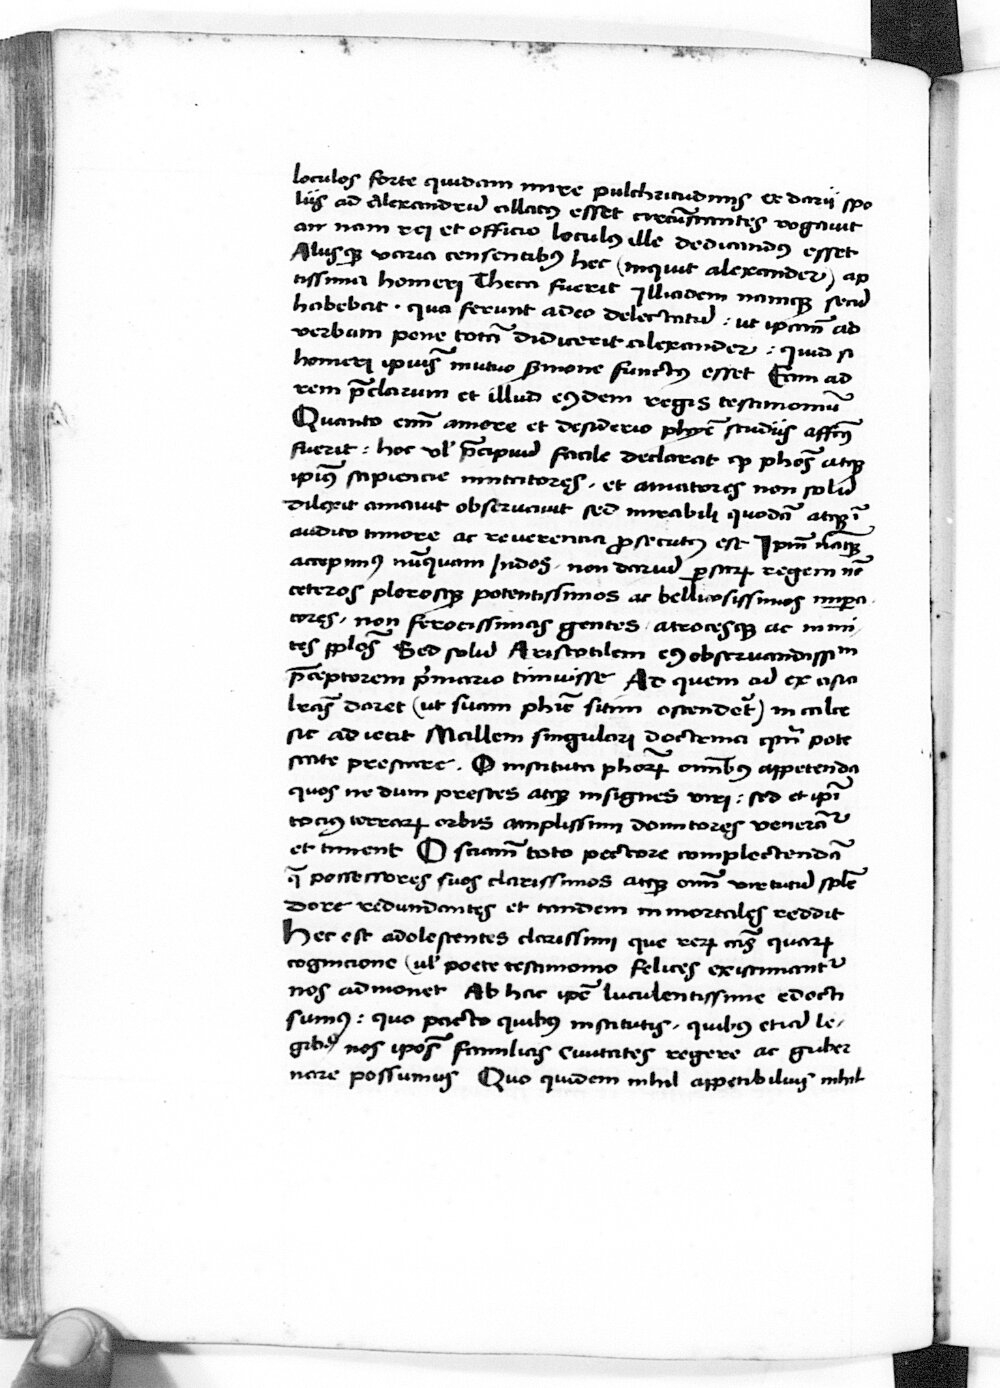 loculos forte quidam mire pulchritudinis ex darii spo
liis ad Alexandrū allatꝰ esset circūstantes rogauit
an nam rei et officio loculꝰ ille dedicandꝰ esset
Aliisqꝫ varia censentibꝰ hec (inquit alexander) ap
tissima homeri Theca fuerit Illiadem namqꝫ secū
habebat . qua ferunt adeo delectatū : ut ipam̄ ad
verbum pene totā didicerit alexander : quid si
homeri ipius̄ mutuo s̄mone functꝰ esset Eam ad
rem p̄clarum et illud eiꝰdem regis testimoniū
Quanto em̄ amore et desiderio phye᷒ studiis affc̄ꝰ
fuerit : hoc vl' p̄cipuū facile declarat qꝫ phos̄ atqꝫ
ipiꝰ̄ sapiencie imitatores, et amatores non solū
dilexit amauit obseruauit sed mirabili quodā atqꝫ ī
audito timore ac reuerencia ꝓsecutꝰ est Ipm̄ nāqꝫ
accepimꝰ nūquam Indos, non dariū ꝑsarꝝ regem nē
ceteros plerosqꝫ potentissimos ac bellicosissimos impa
tores, non ferocissimas gentes, atrocesqꝫ ac inmi
tes pplos̄ Sed solū Aristotilem eiꝰ obseruandissim
p̄ceptorem p̄mario timuisse Ad quem cū ex asia
lrās̄ daret (ut suam phie᷒ sitim ostendet᷑) in calce
sic adiecit Mallem singulari doctrina qm̄ pote
state prestare . O instituta phorꝝ̄ omībꝰ appetenda
quos ne dum prestes atqꝫ insignes viri : sed et ip̄i
tociꝰ terrarꝝ orbis amplissimi domitores venerāt᷑
et timent O sciam̄ toto pectore complectendā
q̄ possessores suos clarissimos atqꝫ om̄ virtutū splē
dore redundantes et tandem inmortales reddit
Hec est adolescentes clarissimi que rerꝝ cās̄ quarꝝ
cognicione (vl' poete testimonio felices existimant᷑
nos admonet Ab hac ipē luculentissime edocti
sumꝰ : quo pacto quibꝰ institutis, quibꝰ etiā le,
gibꝰ nos ipos̄ familias Ciuitates regere ac guber
nare possumus Quo quidem nihil appetibilius nihil